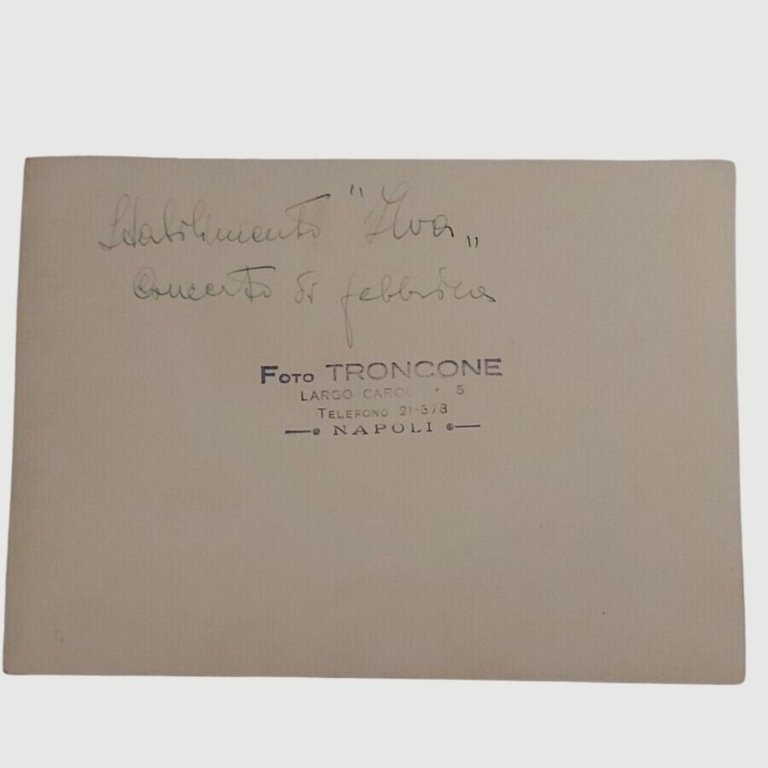 Stabilimento "Ilva"
Concerto di fabbrica
FOTO TRONCONE
LARGO 5
TELEFONO 21-378
NAPOLI